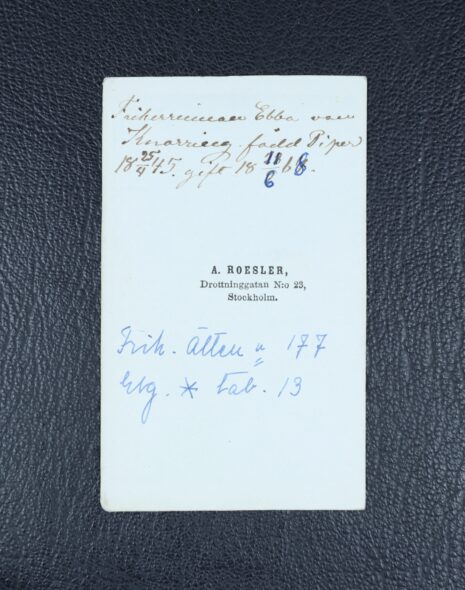 Friherrinnan Ebba von
Knorring född Piper
18 25/4 45. gift 18 11/6 68.
A. ROESLER,
Drottninggatan N:o 23,
Stockholm.
Frih. Ätten n 177
tab. 13